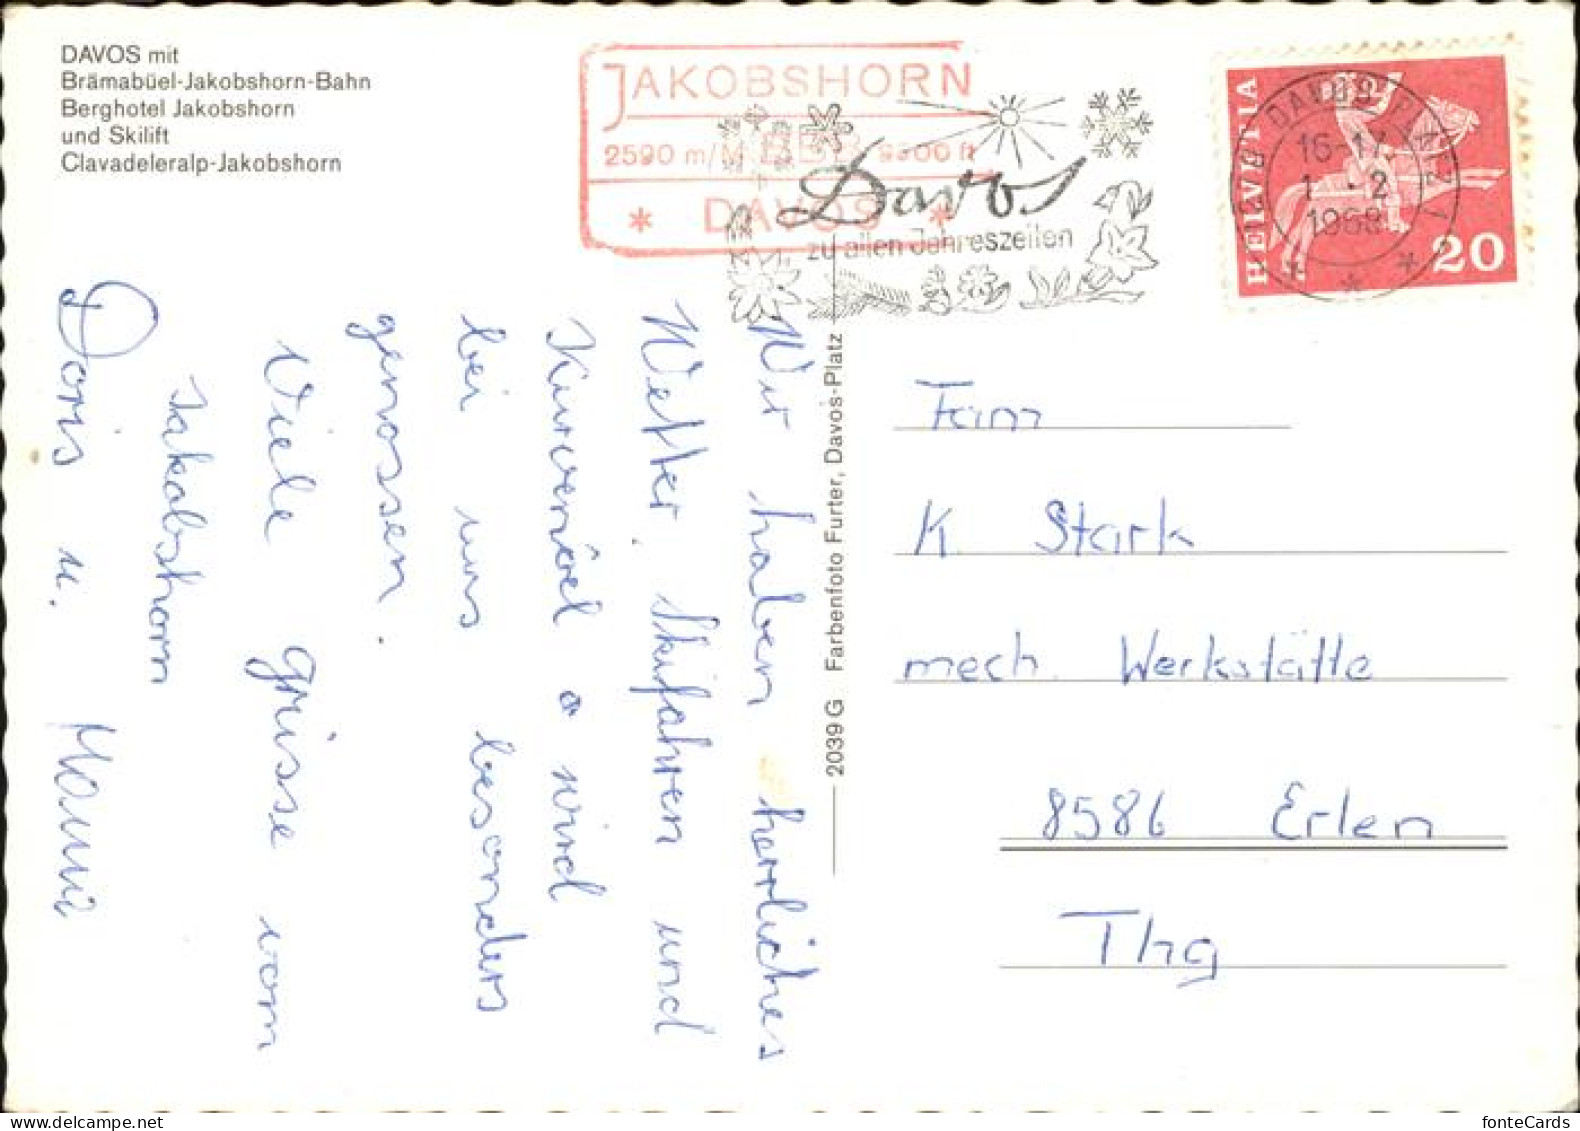 DAVOS mit
Brämabüel-Jakobshorn-Bahn
Berghotel Jakobshorn
und Skilift
Clavadeleralp-Jakobshorn
JAKOBSHORN
2590 m/M
ft
* DAVOS *
Davos
zu allen Jahreszeiten
DAVOS PLATZ 1
16-17
1.-2
1968
HELVETIA
20
Wir haben herrliches
Wetter. Skifahren und
wird
bei uns besonders
genossen.
Viele Grüsse vom
Jakobshorn
Doris u. Hanni
2039 G Farbenfoto Furter, Davos-Platz
Fam
K. Stark
mech. Werkstätte
8586 Erlen
Thg
fonteCards